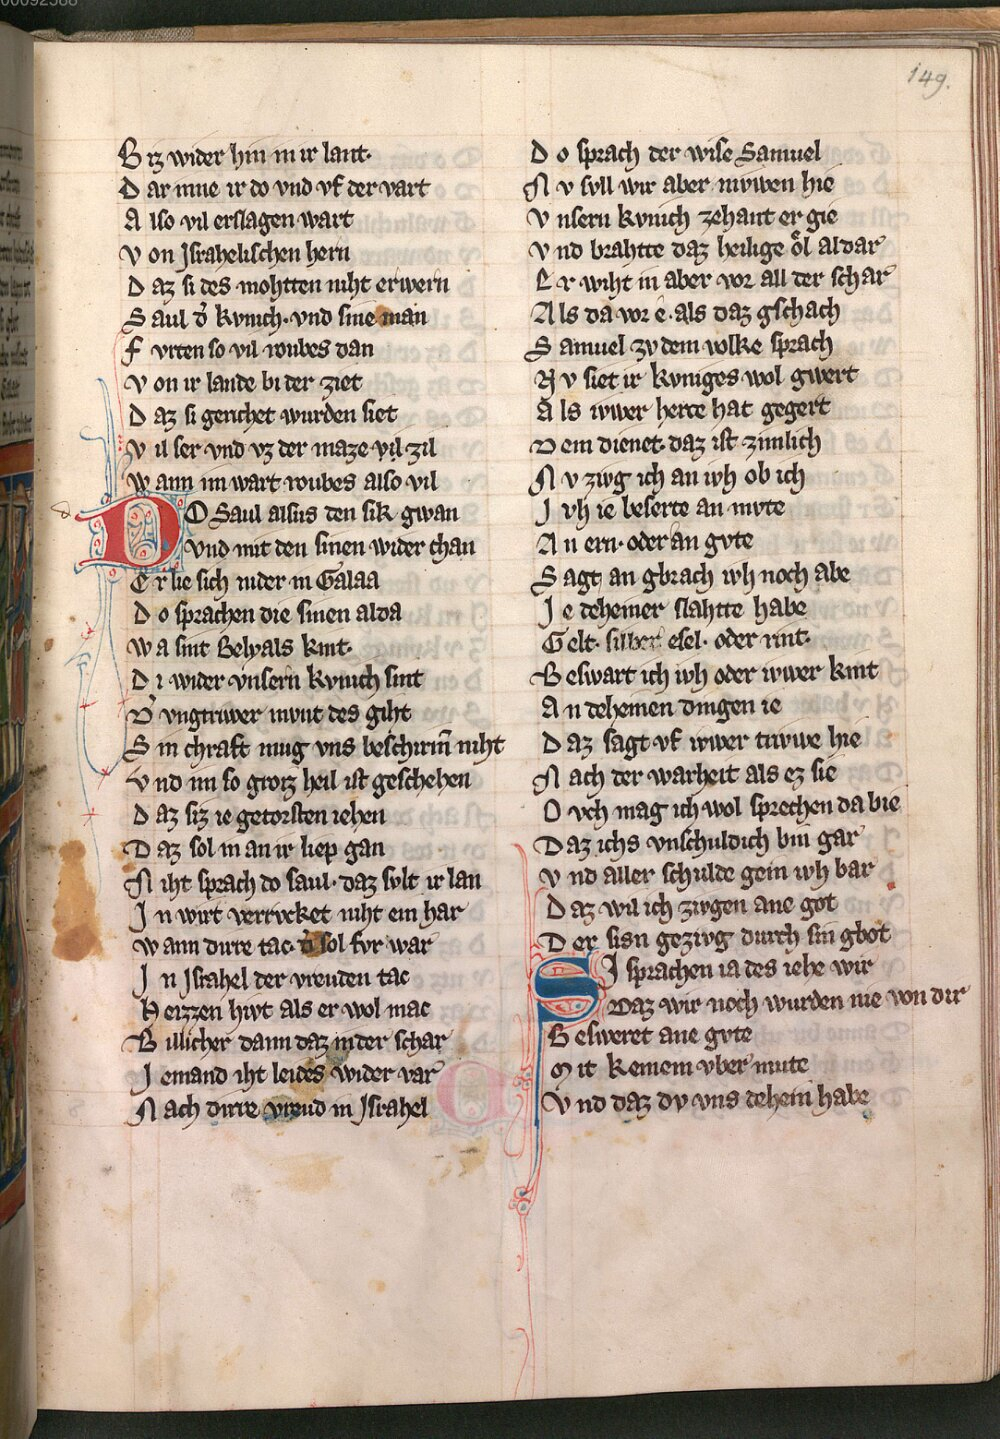 00092588
149.
Biz wider hin in ir lant.
Dar inne ir do vnd vf der vart
Also vil erslagen wart
Von Jsrahelischen hern
Daz si des mohtten niht erwern
Saul d͛ kvnich. vnd sine man
Fvrten so vil roubes dan
Von ir lande bi der ziet
Daz si gerichet wurden siet
Vil ser vnd vz der maze vil zil
Wann im wart roubes also vil
d
DO Saul alsus den sik gwan
Vnd mit den sinen wider chan
Er lie sich nider in Galaa
Do sprachen die sinen alda
Wa sint Belyals kint.
Di wider vnsern kvnich sint
D͛ vngtriwer mvnt des giht
Sin chraft mug vns beschirm̄ niht
Vnd im so groz heil ist geschehen
Daz siz ie getorsten iehen
Daz sol in an ir liep gan
Niht sprach do saul. daz svlt ir lan
Jn wirt verrvcket niht ein har
Wann dirre tac. d͛ sol fvr war
Jn Jsrahel der vreuden tac
Heizzen hivt als er wol mac
Billicher dann daz in der schar
Jemand iht leides wider var
Nach dirre vreud in Jsrahel
Do sprach der wise Samuel
Nv svll wir aber nivwen hie
Vnsern kvnich zehant er gie
Vnd brahtte daz heilige ôl aldar
Er wiht in aber vor all der schar
Als da vor e. als daz gschach
Samuel zv dem volke sprach
Nv siet ir kvniges wol gwert
Als iwer herce hat gegert
Dem dienet. daz ist zimlich
Nv zivg ich an ivh ob ich
Jvh ie beserte an mvte
An ern. oder an gvte
Sagt an gbrach ivh noch abe
Je deheiner slahtte habe
Gelt. silber. esel. oder rint.
Beswart ich ivh oder iwer kint
An deheinen dingen ie
Daz sagt vf iwer triwe hie
Nach der warheit als ez sie
Ovch mag ich wol sprechen da bie
Daz ichs vnschuldich bin gar
Vnd aller schulde gein ivh bar
Daz wil ich zivgen ane got
Der si sin gezivg durch sin gbot
SJ sprachen ia des iehe wir
Daz wir noch wurden nie von dir
Besweret ane gvte
Mit keinem vber mute
Vnd daz dv vns dehein habe